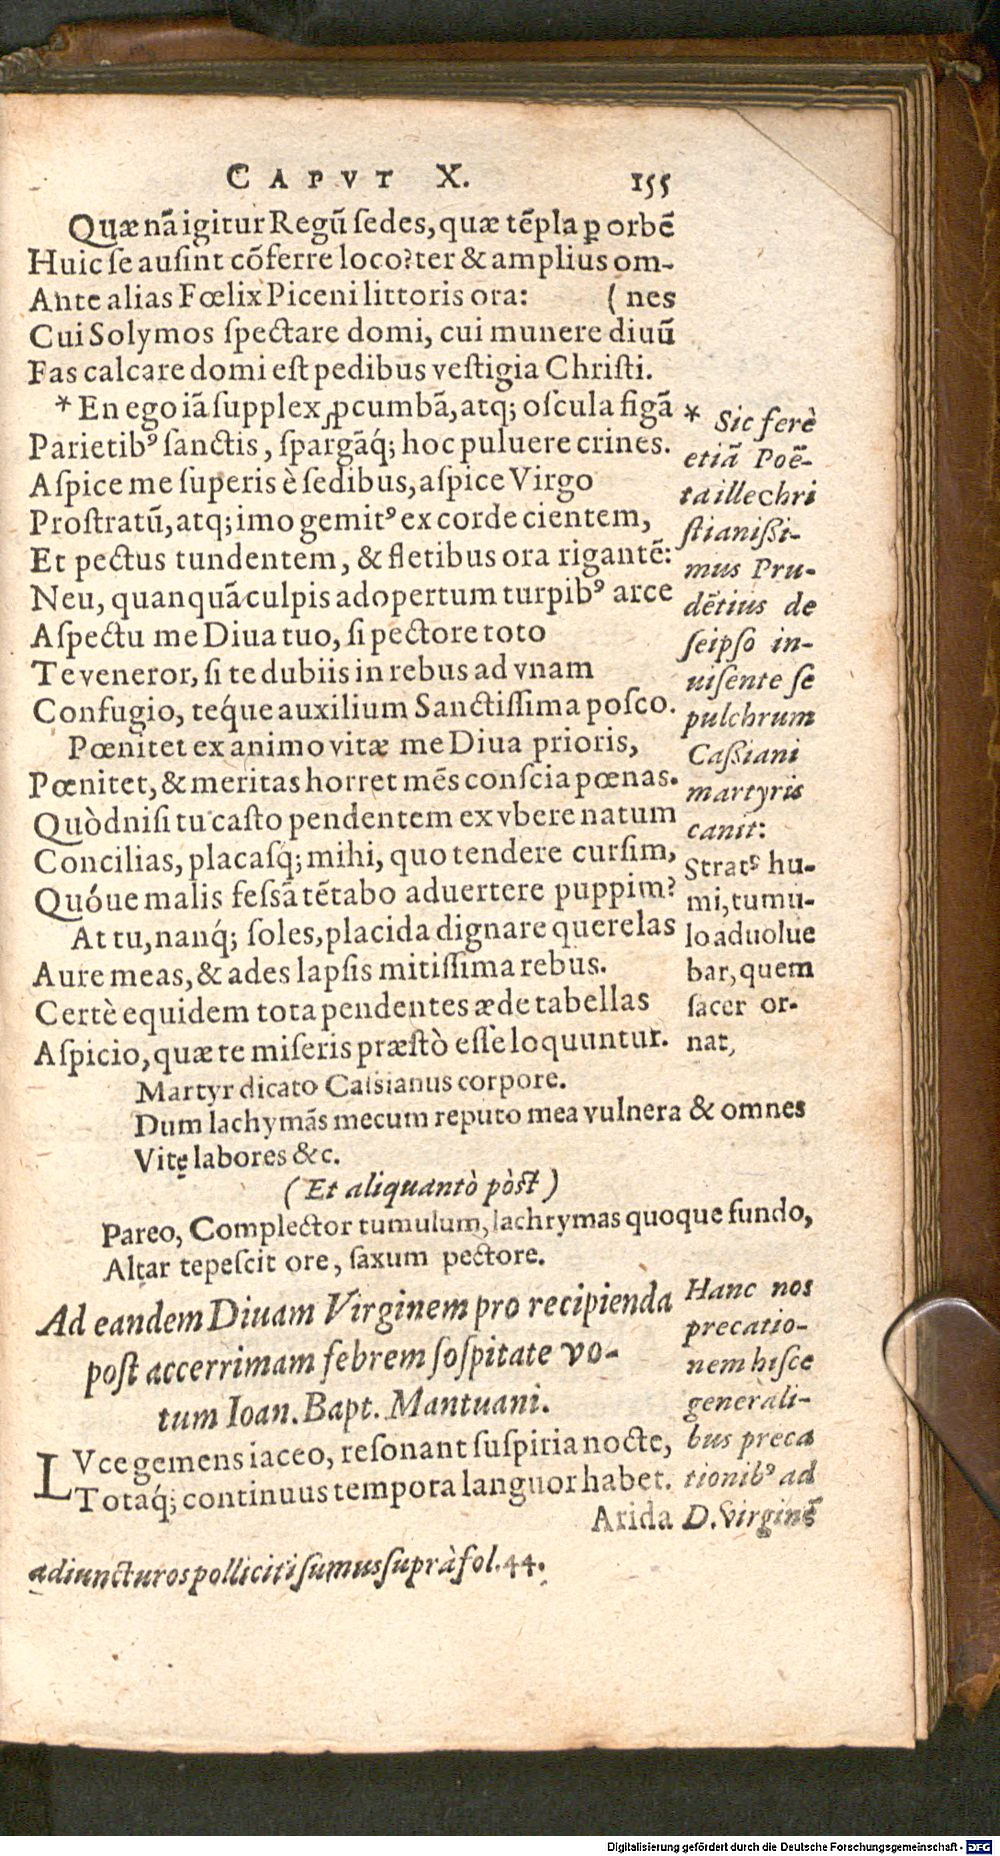 CAPVT X. 155
Quæ nã igitur Regũ ſedes, quæ tẽpla ꝑ orbẽ
Huic ſe auſint cõferre loco? ter & amplius om-
Ante alias Fœlix Piceni littoris ora: (nes
Cui Solymos ſpectare domi, cui munere diuũ
Fas calcare domi eſt pedibus veſtigia Chriſti.
* En ego iã ſupplex ꝓcumbã, atq; oſcula figã
Parietibꝰ ſanctis, ſpargãq́; hoc puluere crines.
Aſpice me ſuperis è ſedibus, aſpice Virgo
Proſtratũ, atq; imo gemitꝰ ex corde cientem,
Et pectus tundentem, & fletibus ora rigantẽ:
Neu, quanquã culpis adopertum turpibꝰ arce
Aſpectu me Diua tuo, ſi pectore toto
Te veneror, ſi te dubiis in rebus ad vnam
Confugio, teq́ue auxilium Sanctiſſima poſco.
Pœnitet ex animo vitæ me Diua prioris,
Pœnitet, & meritas horret mẽs conſcia pœnas.
Quòd niſi tu caſto pendentem ex vbere natum
Concilias, placaſq; mihi, quo tendere curſim,
Quóue malis feſſã tẽtabo aduertere puppim?
At tu, nanq́; ſoles, placida dignare querelas
Aure meas, & ades lapſis mitiſſima rebus.
Certè equidem tota pendentes æde tabellas
Aſpicio, quæ te miſeris præſtò eſſe loquuntur.
* Sic ferè
etiã Poë-
ta ille chri
ſtianißi-
mus Pru-
dẽtius de
ſeipſo in-
uiſente ſe
pulchrum
Caßiani
martyris
canit:
Stratꝰ hu-
mi, tumu-
lo aduolue
bar, quem
ſacer or-
nat,
Martyr dicato Caſsianus corpore.
Dum lachymãs mecum reputo mea vulnera & omnes
Vitę labores &c.
(Et aliquantò pòſt)
Pareo, Complector tumulum, lachrymas quoque fundo,
Altar tepeſcit ore, ſaxum pectore.
Ad eandem Diuam Virginem pro recipienda
poſt accerrimam febrem ſoſpitate vo-
tum Ioan. Bapt. Mantuani.
LVce gemens iaceo, reſonant ſuſpiria nocte,
Totaq́; continuus tempora languor habet.
Arida
Hanc nos
precatio-
nem hiſce
generali-
bus preca
tionibꝰ ad
D. Virginẽ
adiuncturos polliciti ſumus ſuprà fol. 44.
Digitalisierung gefördert durch die Deutsche Forschungsgemeinschaft - DFG